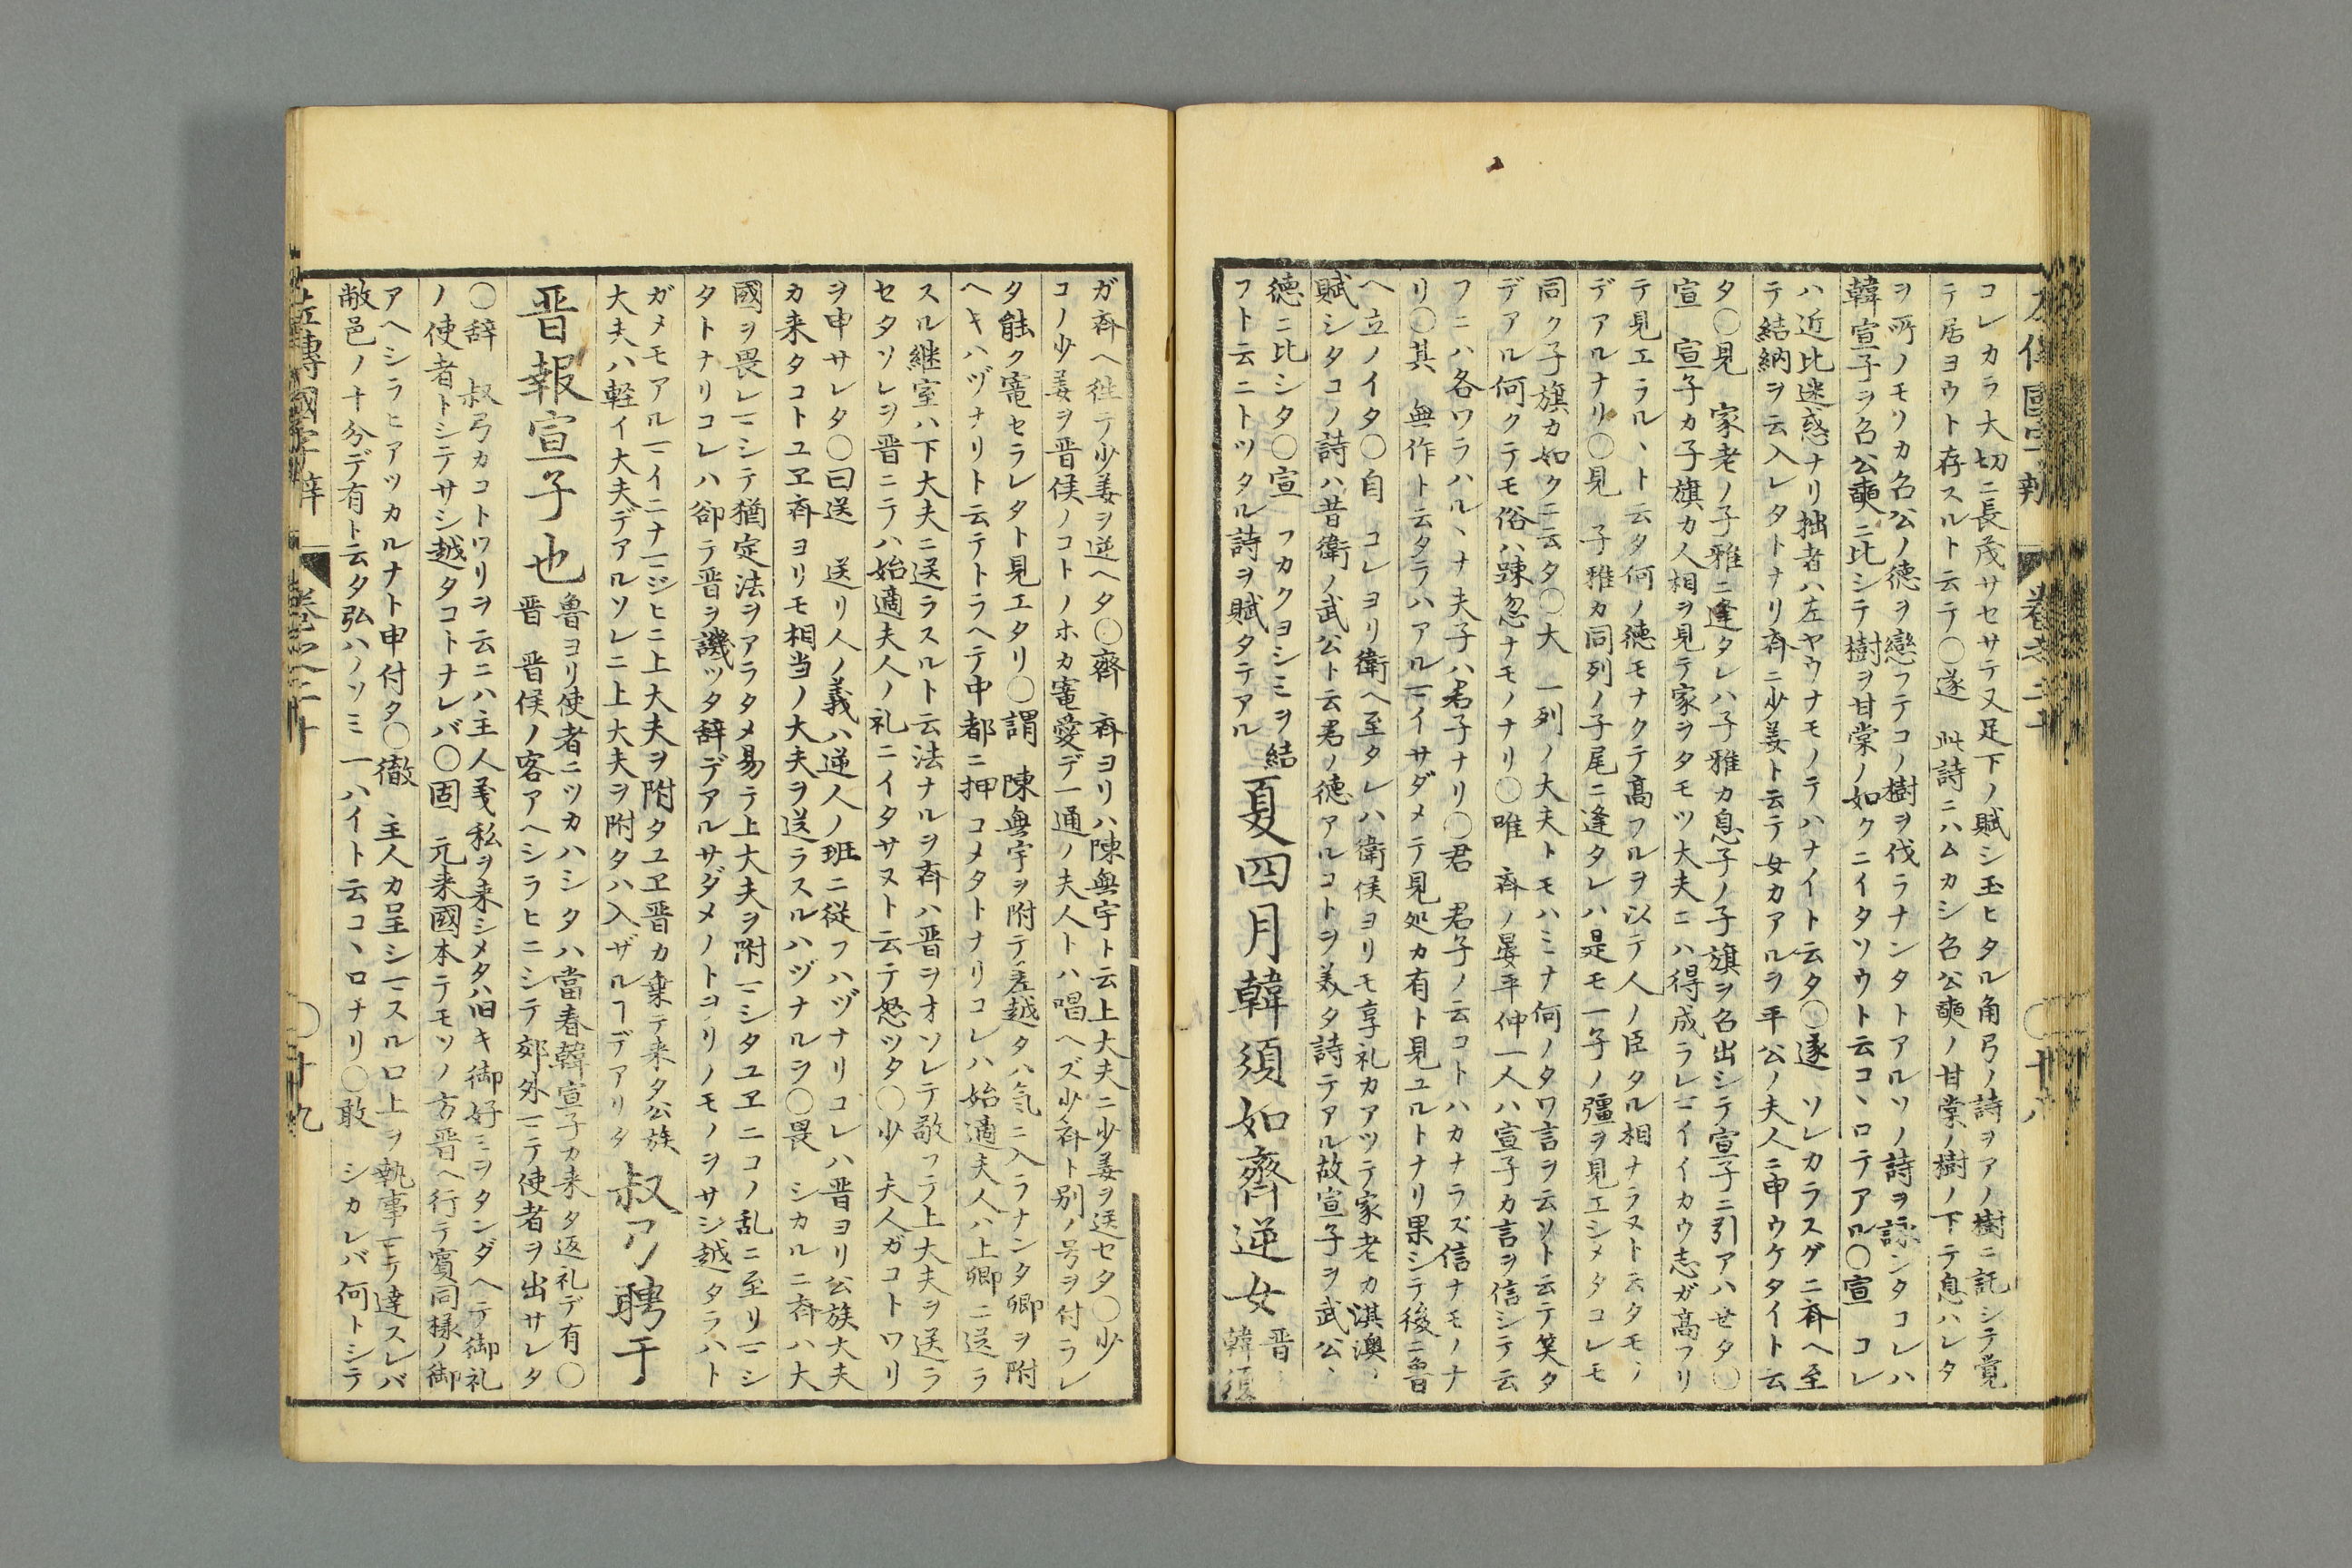 コレカラ大切ニ長茂サセサテ又足下ノ賦シ玉ヒタル角弓ノ詩ヲアノ樹ニ託シテ覚
テ居ヨウト存スルト云テ〇遂　此詩ニハムカシ召公奭ノ甘棠ノ樹ノ下テ息ハレタ
ヲ所ノモリカ召公ノ徳ヲ戀フテコノ樹ヲ伐ラナンタトアルソノ詩ヲ詠シタコレハ
韓宣子ヲ召公奭ニ比シテ樹ヲ甘棠ノ如クニイタソウト云コヽロテアル〇宣　コレ
ハ近比迷惑ナリ拙者ハ左ヤウナモノテハナイト云タ〇遂　ソレカラスグニ斉ヘ至
テ結納ヲ云入レタトナリ斉ニ少姜ト云テ女カアルヲ平公ノ夫人ニ申ウケタイト云
タ〇見　家老ノ子雅ニ逢タレハ子雅カ息子ノ子旗ヲ召出シテ宣子ニ引アハセタ〇
宣　宣子カ子旗カ人相ヲ見テ家ヲタモツ大夫ニハ得成ラレヿイイカウ志ガ高フリ
テ見エラルヽト云タ何ノ徳モナクテ高フルヲ以テ人ノ臣タル相ナラヌト云タモノ
デアルナリ〇見　子雅カ同列ノ子尾ニ逢タレハ是モ一子ノ彊ヲ見エシメタコレモ
同ク子旗カ如クニ云タ〇大　一列ノ大夫トモハミナ何ノタワ言ヲ云ソト云テ笑タ
デアル何クテモ俗ハ踈忽ナモノナリ〇唯　斉ノ晏平仲一人ハ宣子カ言ヲ信シテ云
フニハ各ワラハルヽナ夫子ハ君子ナリ〇君　君子ノ云コトハカナラズ信ナモノナ
リ〇其　無作ト云タラハアルヿイサダメテ見処カ有ト見ユルトナリ果シテ後ニ魯
ヘ立ノイタ〇自　コレヨリ衛ヘ至タレハ衛侯ヨリモ享礼カアツテ家老カ淇澳ヽ
賦シタコノ詩ハ昔衛ノ武公ト云君ノ徳アルコトヲ美タ詩テアル故宣子ヲ武公ヽ
徳ニ比シタ〇宣　フカクヨシミヲ結
フト云ニトツタル詩ヲ賦タテアル
夏四月韓須如齊逆女
晋
韓須
ガ斉ヘ徃テ少姜ヲ逆ヘタ〇齊　斉ヨリハ陳無宇ト云上大夫ニ少姜ヲ送セタ〇少
コノ少姜ヲ晋侯ノコトノホカ寵愛デ一通ノ夫人トハ唱ヘズ少斉ト別ノ号ヲ付ラレ
タ能ク寵セラレタト見エタリ〇謂　陳無宇ヲ附テ差越タハ気ニ入ラナンタ卿ヲ附
ヘキハヅナリト云テトラヘテ中都ニ押コメタトナリコレハ始適夫人ハ上卿ニ送ラ
スル継室ハ下大夫ニ送ラスルト云法ナルヲ斉ハ晋ヲオソレテ敬フテ上大夫ヲ送ラ
セタソレヲ晋ニテハ始適夫人ノ礼ニイタサヌト云テ怒ツタ〇少　夫人ガコトワリ
ヲ申サレタ〇曰送　送リ人ノ義ハ逆人ノ班ニ従フハヅナリコレハ晋ヨリ公族大夫
カ来タコトユヱ斉ヨリモ相当ノ大夫ヲ送ラスルハヅナルヲ〇畏　シカルニ斉ハ大
國ヲ畏レヿシテ猶定法ヲアラタメ易テ上大夫ヲ附ヿシタユヱニコノ乱ニ至リヿシ
タトナリコレハ卻テ晋ヲ譏ツタ辞デアルサダメノトヲリノモノヲサシ越タラハト
ガメモアルヿイニナヿジヒニ上大夫ヲ附タユヱ晋カ棄テ来タ公族
大夫ハ軽イ大夫デアルソレニ上大夫ヲ附タハ入ザルヿデアリタ
叔弓聘于
晋報宣子也
魯ヨリ使者ニツカハシタハ當春韓宣子カ来タ返礼デ有〇
晋　晋侯ノ客アヘシラヒニシテ郊外ヿテ使者ヲ出サレタ
〇辞　叔弓カコトワリヲ云ニハ主人義私ヲ来シメタハ旧キ御好ミヲタンダヘテ御礼
ノ使者トシテサシ越タコトナレバ〇固　元来國本テモソノ方晋ヘ行テ賓同様ノ御
アヘシラヒアツカルナト申付タ〇徹　主人カ呈シヿスル口上ヲ執事ヿテ達スレバ
敝邑ノ十分デ有ト云タ弘ハノソミ一ハイト云コヽロナリ〇敢　シカレバ何トシテ
左傳國字辯　巻之二十　〇十九